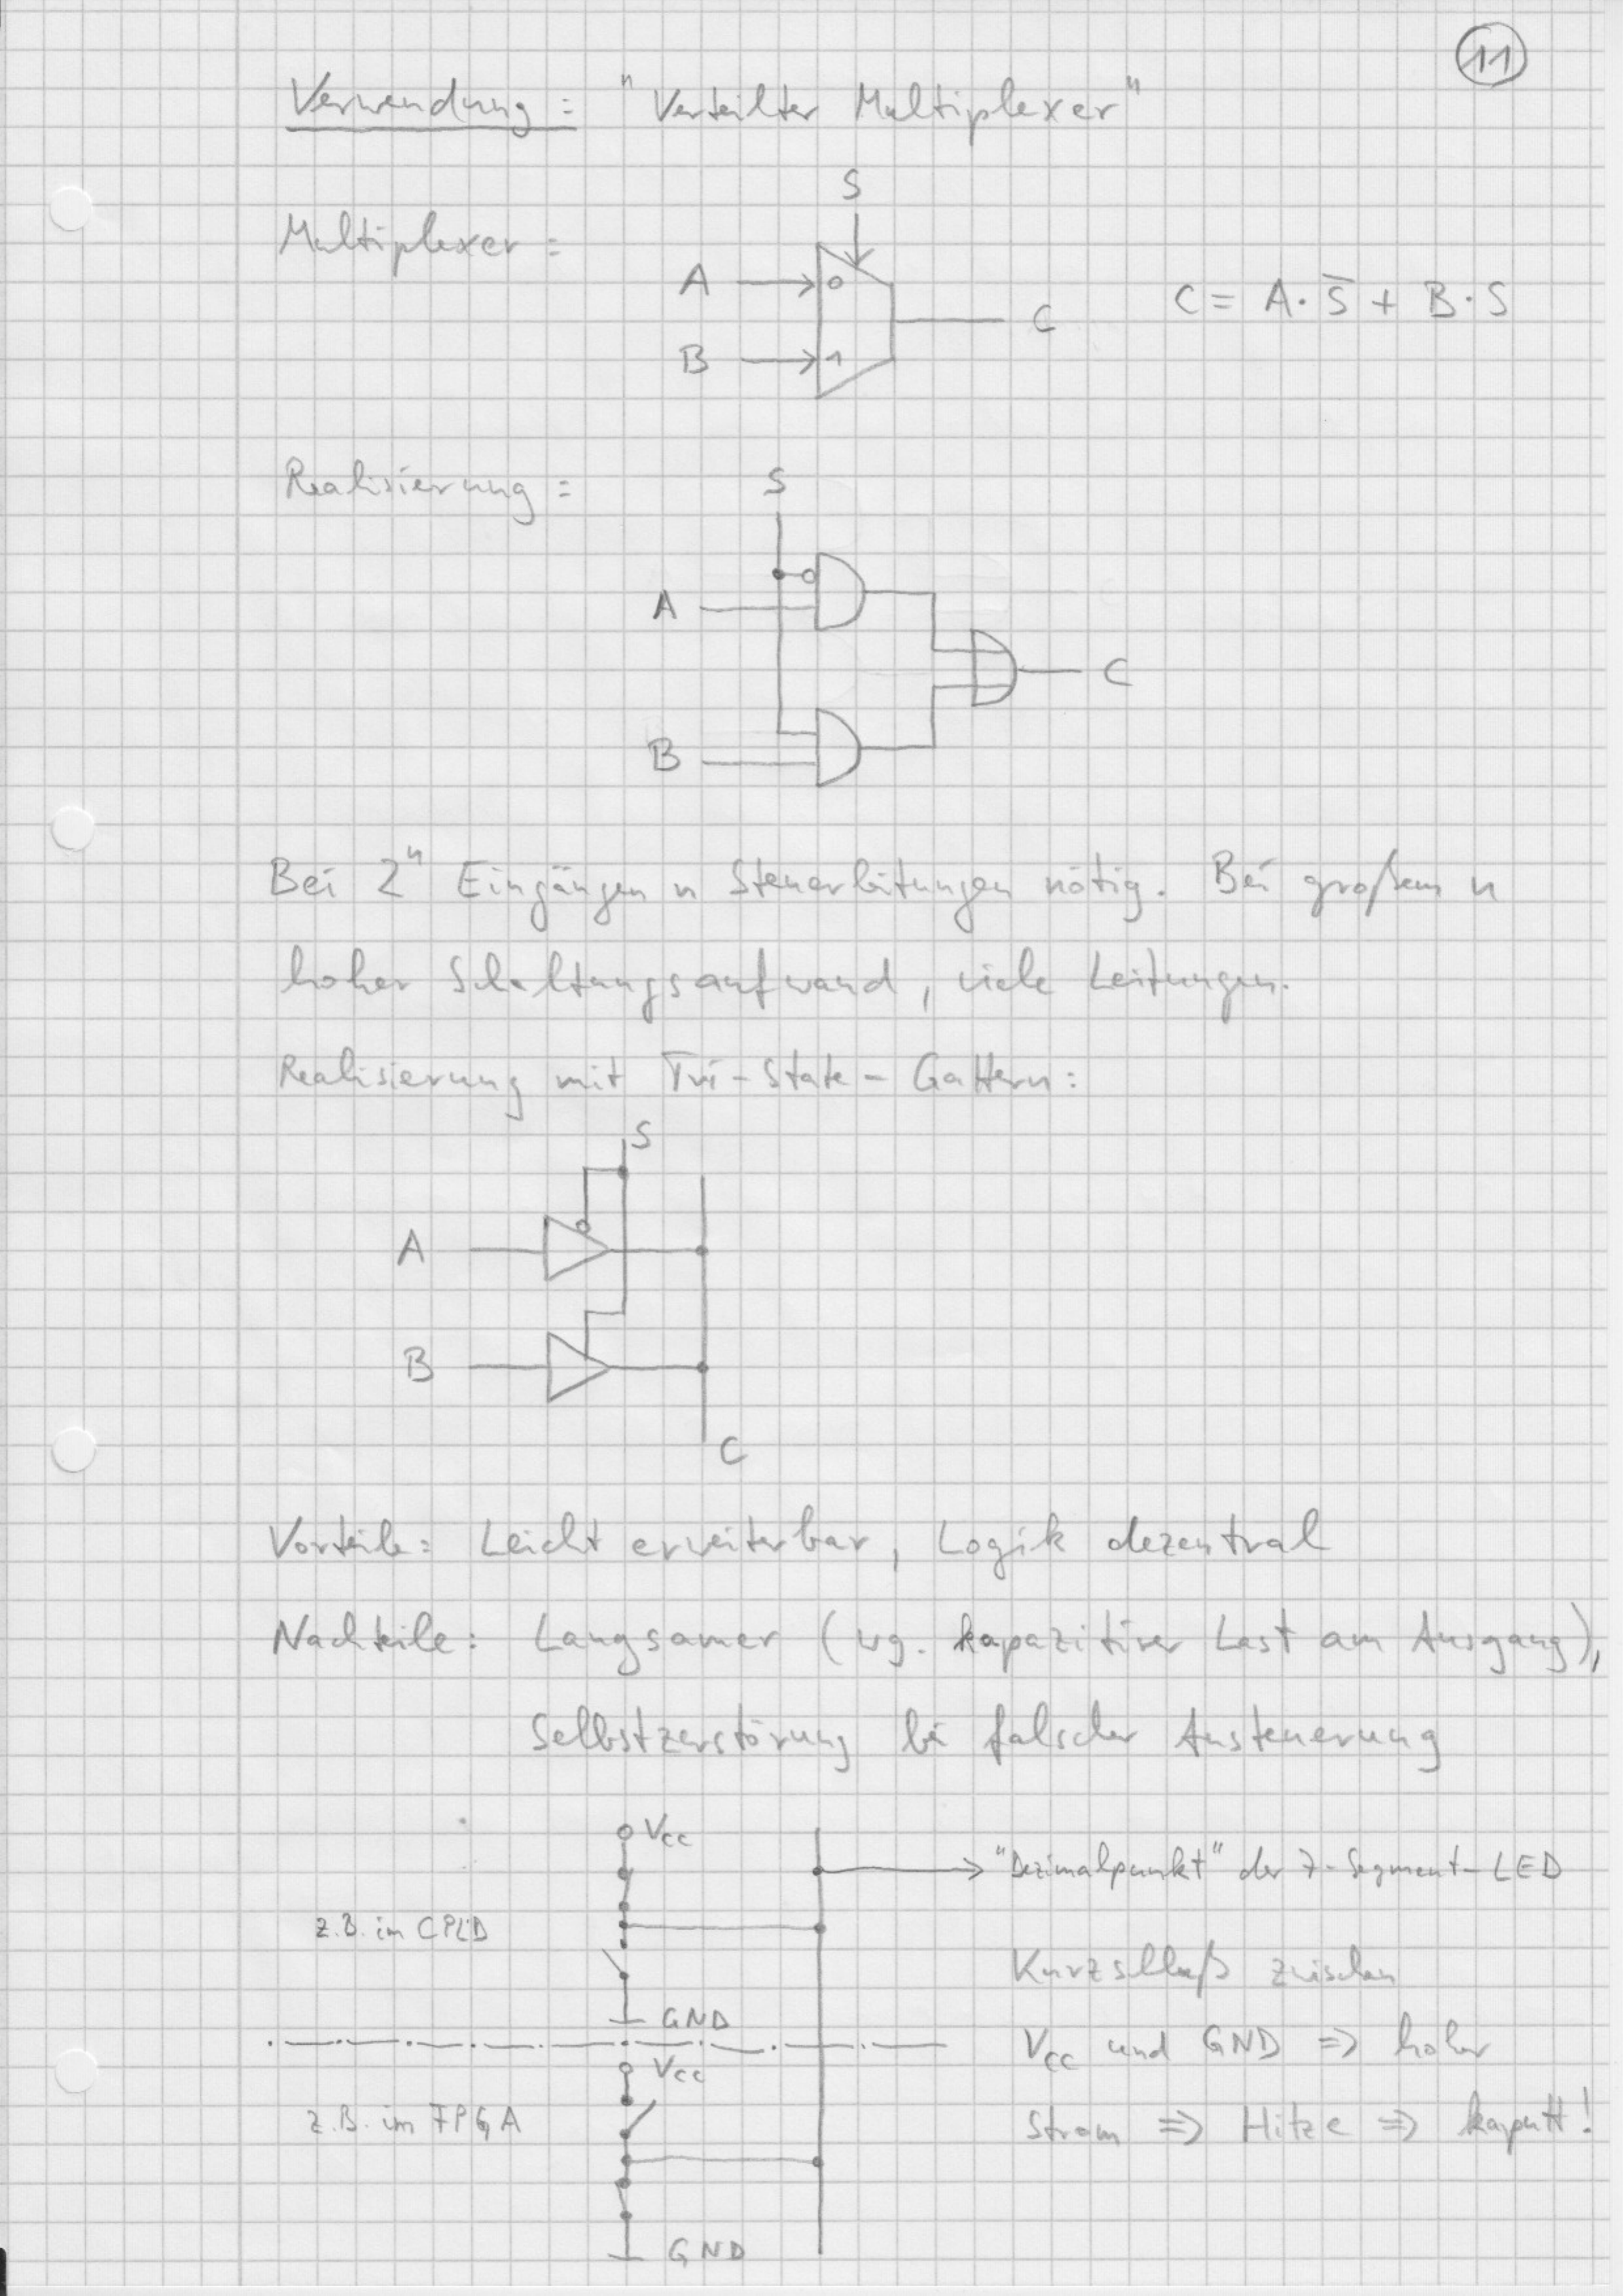 11
Verwendung: "Verteilter Multiplexer"
S
Multiplexer:
A 0
C
C = A · S̅ + B · S
B 1
Realisierung:
S
A
C
B
Bei 2ⁿ Eingängen n Steuerleitungen nötig. Bei großem n
hoher Schaltungsaufwand, viele Leitungen.
Realisierung mit Tri-State-Gattern:
S
A
B
C
Vorteile: Leicht erweiterbar, Logik dezentral
Nachteile: Langsamer (wg. kapazitiver Last am Ausgang),
Selbstzerstörung bei falscher Ansteuerung
Vcc
"Dezimalpunkt" der 7-Segment-LED
z.B. im CPLD
Kurzschluß zwischen
GND
Vcc und GND => hoher
Vcc
z.B. im FPGA
Strom => Hitze => kaputt!
GND